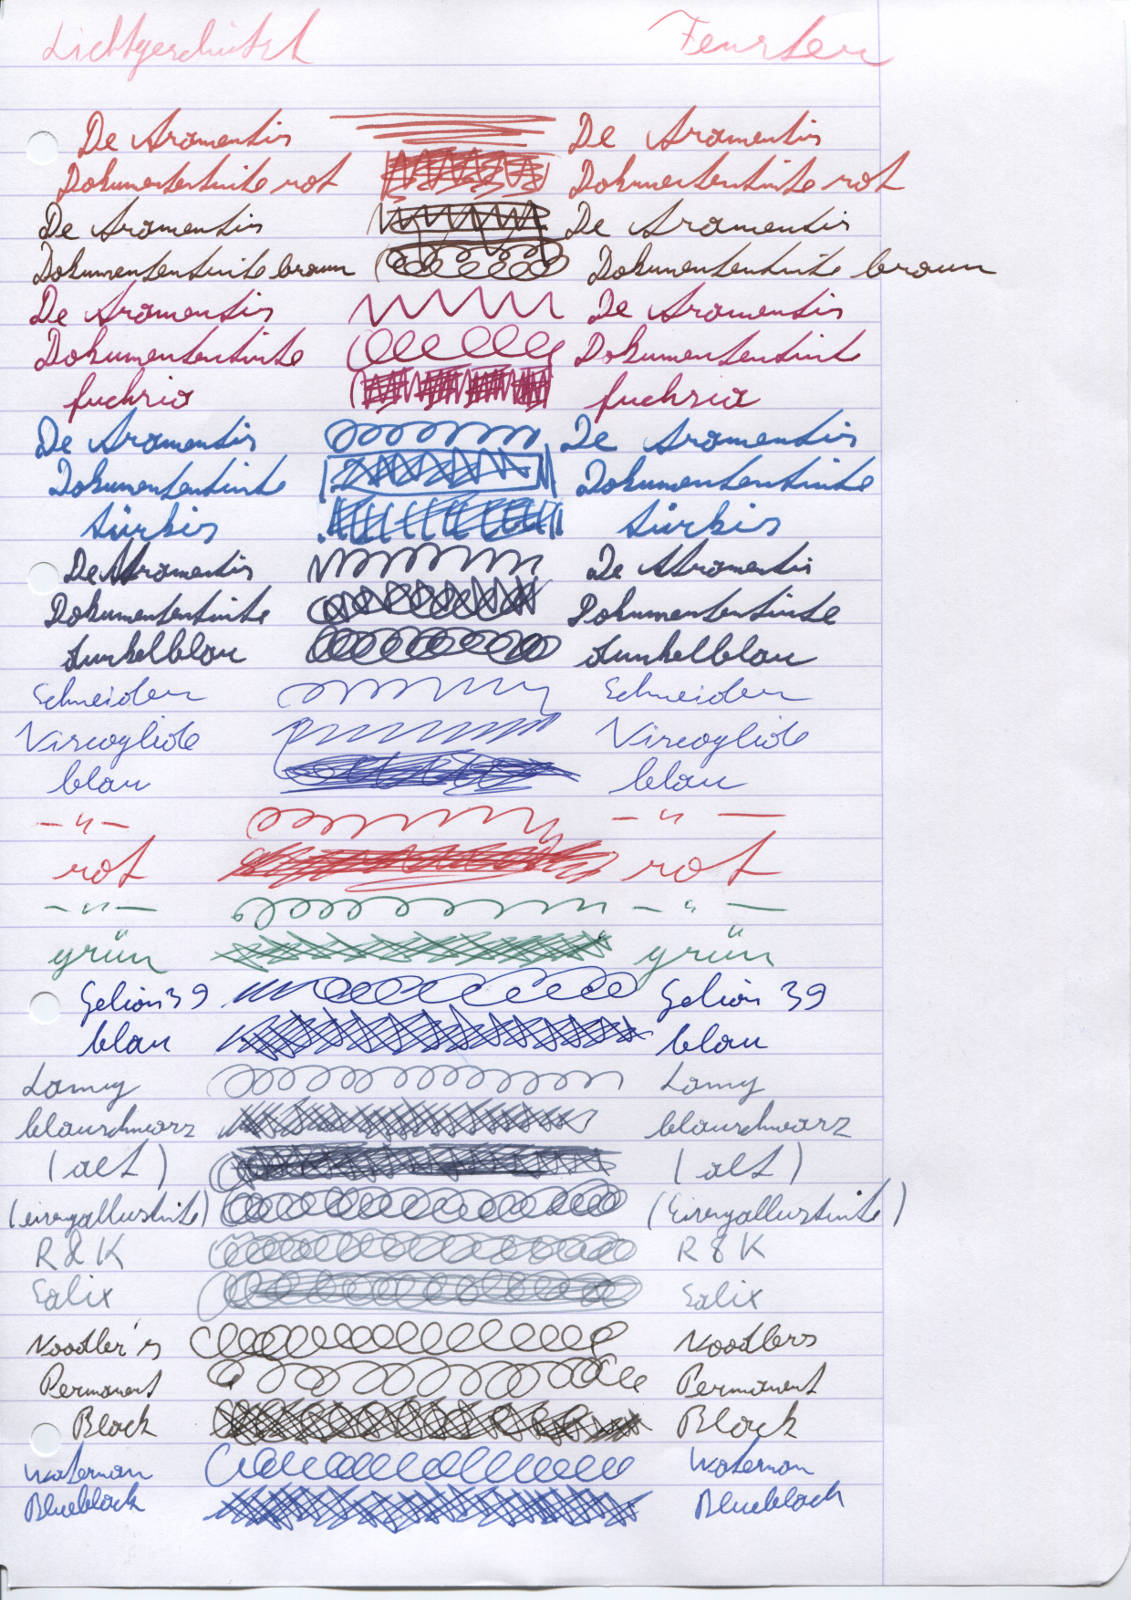 Lichtgeschützt Fenster
De Atramentis De Atramentis
Dokumententinte rot Dokumententinte rot
De Atramentis De Atramentis
Dokumententinte braun Dokumententinte braun
De Atramentis De Atramentis
Dokumententinte Dokumententinte
fuchsia fuchsia
De Atramentis De Atramentis
Dokumententinte Dokumententinte
türkis türkis
De Atramentis De Atramentis
Dokumententinte Dokumententinte
dunkelblau dunkelblau
Schneider Schneider
Viscoglide Viscoglide
blau blau
–"– –"–
rot rot
–"– –"–
grün grün
Gelion 39 Gelion 39
blau blau
Lamy Lamy
blauschwarz blauschwarz
(alt) (alt)
(eisengallustinte) (Eisengallustinte)
R&K R&K
Salix Salix
Noodler's Noodlers
Permanent Permanent
Black Black
Waterman Waterman
Blueblack Blueblack